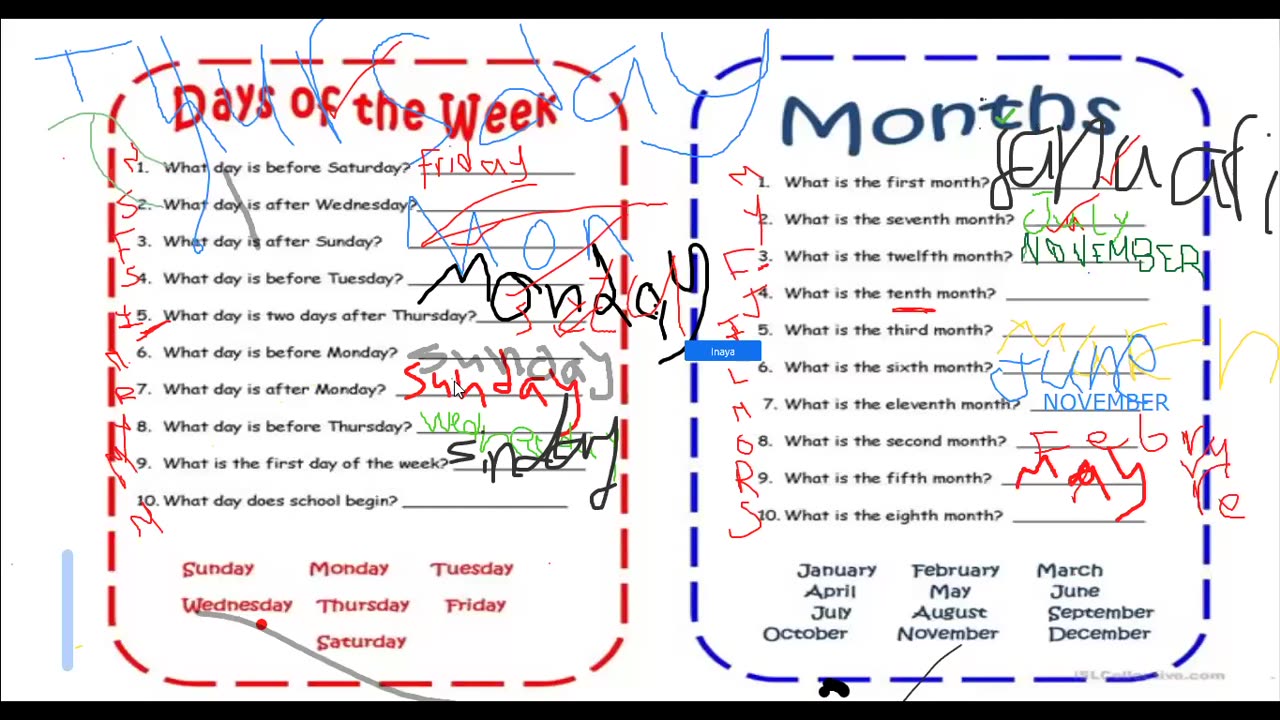 Thursday
Days of the Week
1. What day is before Saturday? Friday
2. What day is after Wednesday?
3. What day is after Sunday? Mon
4. What day is before Tuesday? Monday
5. What day is two days after Thursday?
6. What day is before Monday? sunday
7. What day is after Monday? sunday
8. What day is before Thursday?
9. What is the first day of the week? sinday
10. What day does school begin?
Sunday Monday Tuesday
Wednesday Thursday Friday
Saturday
Months
1. What is the first month? januari
2. What is the seventh month? July
3. What is the twelfth month? NOVEMBER
4. What is the tenth month?
5. What is the third month?
Inaya
6. What is the sixth month? June
7. What is the eleventh month? NOVEMBER
8. What is the second month? Feb ry
9. What is the fifth month? May
10. What is the eighth month?
January February March
April May June
July August September
October November December
iSLCollective.com